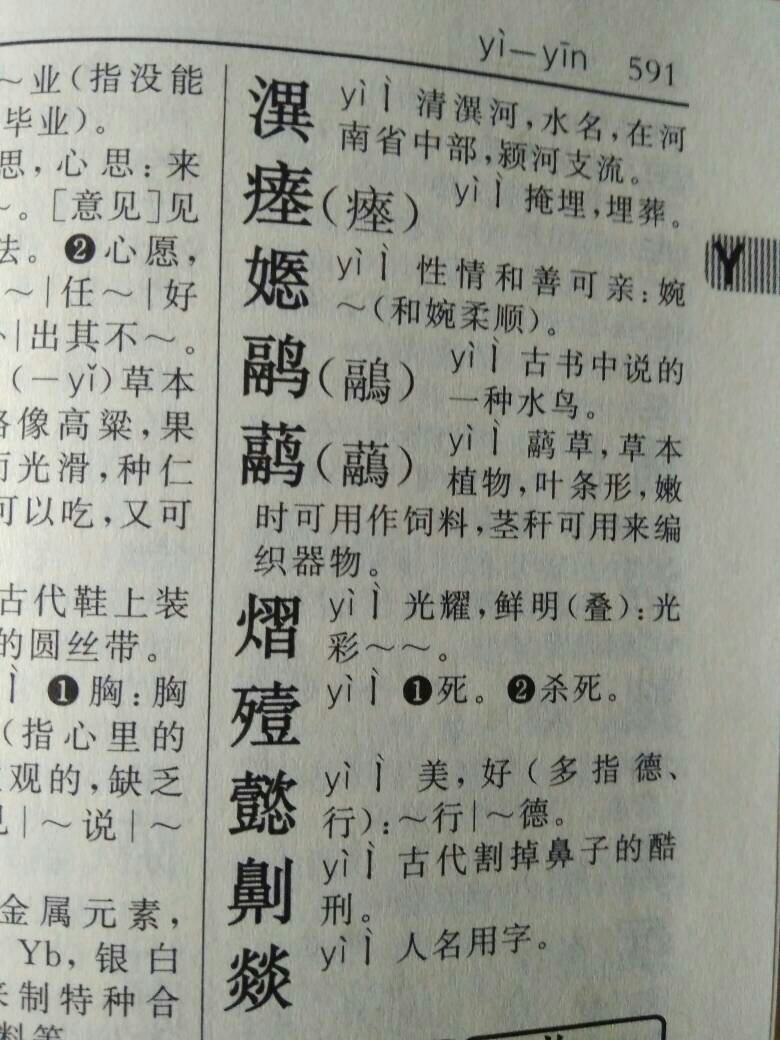 yì—yīn 591
～业(指没能
毕业)。
思,心思:来
～。[意见]见
法。❷心愿,
～|任～|好
|出其不～。
(—yǐ)草本
略像高粱,果
而光滑,种仁
可以吃,又可
古代鞋上装
的圆丝带。
ㄧˋ ❶胸:胸
(指心里的
观的,缺乏
|～说|～
金属元素,
Yb,银白
来制特种合
料等
潩 yì ㄧˋ 清潩河,水名,在河
南省中部,颍河支流。
瘗(瘞) yì ㄧˋ 掩埋,埋葬。
嫕 yì ㄧˋ 性情和善可亲:婉
～(和婉柔顺)。
鹝(鷊) yì ㄧˋ 古书中说的
一种水鸟。
𬟁(虉) yì ㄧˋ 𬟁草,草本
植物,叶条形,嫩
时可用作饲料,茎秆可用来编
织器物。
熠 yì ㄧˋ 光耀,鲜明(叠):光
彩～～。
殪 yì ㄧˋ ❶死。❷杀死。
懿 yì ㄧˋ 美,好(多指德、
行):～行|～德。
劓 yì ㄧˋ 古代割掉鼻子的酷
刑。
燚 yì ㄧˋ 人名用字。
Y